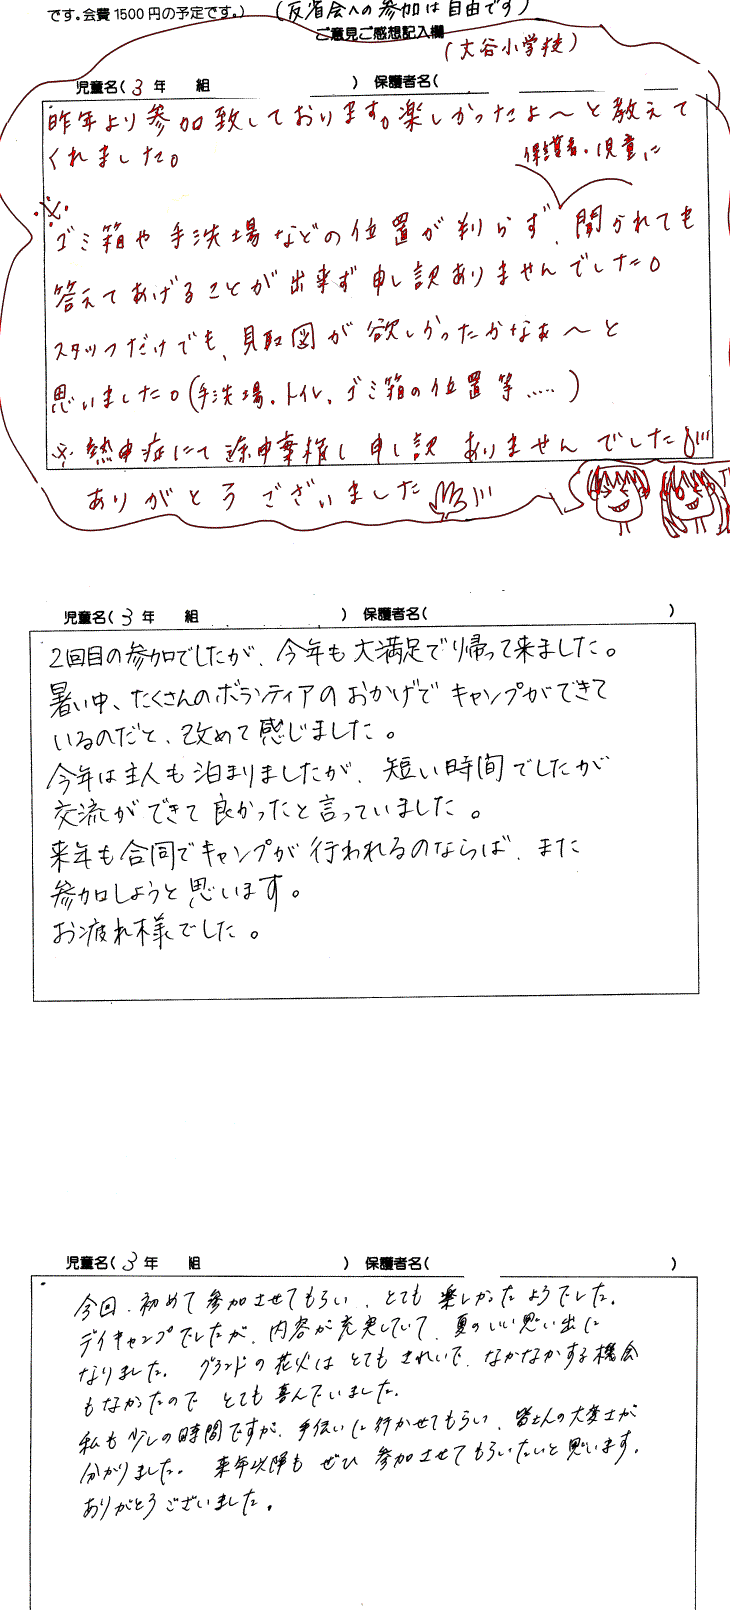 です。会費1500円の予定です。) (反省会への参加は自由です)
ご意見ご感想記入欄
(大谷小学校)
児童名(3年 組 ) 保護者名(
昨年より参加致しております。楽しかったよ〜と教えて
くれました。
保護者・児童に
※
ゴミ箱や手洗場などの位置が判らず、聞かれても
答えてあげることが出来ず申し訳ありませんでした。
スタッフだけでも、見取図が欲しかったかなぁ〜と
思いました。(手洗場、トイレ、ゴミ箱の位置等.....)
※熱中症にて途中棄権し申し訳ありませんでした
ありがとうございました
児童名(3年 組 ) 保護者名( )
2回目の参加でしたが、今年も大満足で帰って来ました。
暑い中、たくさんのボランティアのおかげでキャンプができて
いるのだと、改めて感じました。
今年は主人も泊まりましたが、短い時間でしたが
交流ができて良かったと言っていました。
来年も合同でキャンプが行われるのならば、また
参加しようと思います。
お疲れ様でした。
児童名(3年 組 ) 保護者名( )
今回、初めて参加させてもらい、とても楽しかったようでした。
デイキャンプでしたが、内容が充実していて、夏のいい思い出に
なりました。グランドの花火はとてもきれいで、なかなかする機会
もなかったのでとても喜んでいました。
私も少しの時間ですが、手伝いに行かせてもらい、皆さんの大変さが
分かりました。来年以降もぜひ参加させてもらいたいと思います。
ありがとうございました。